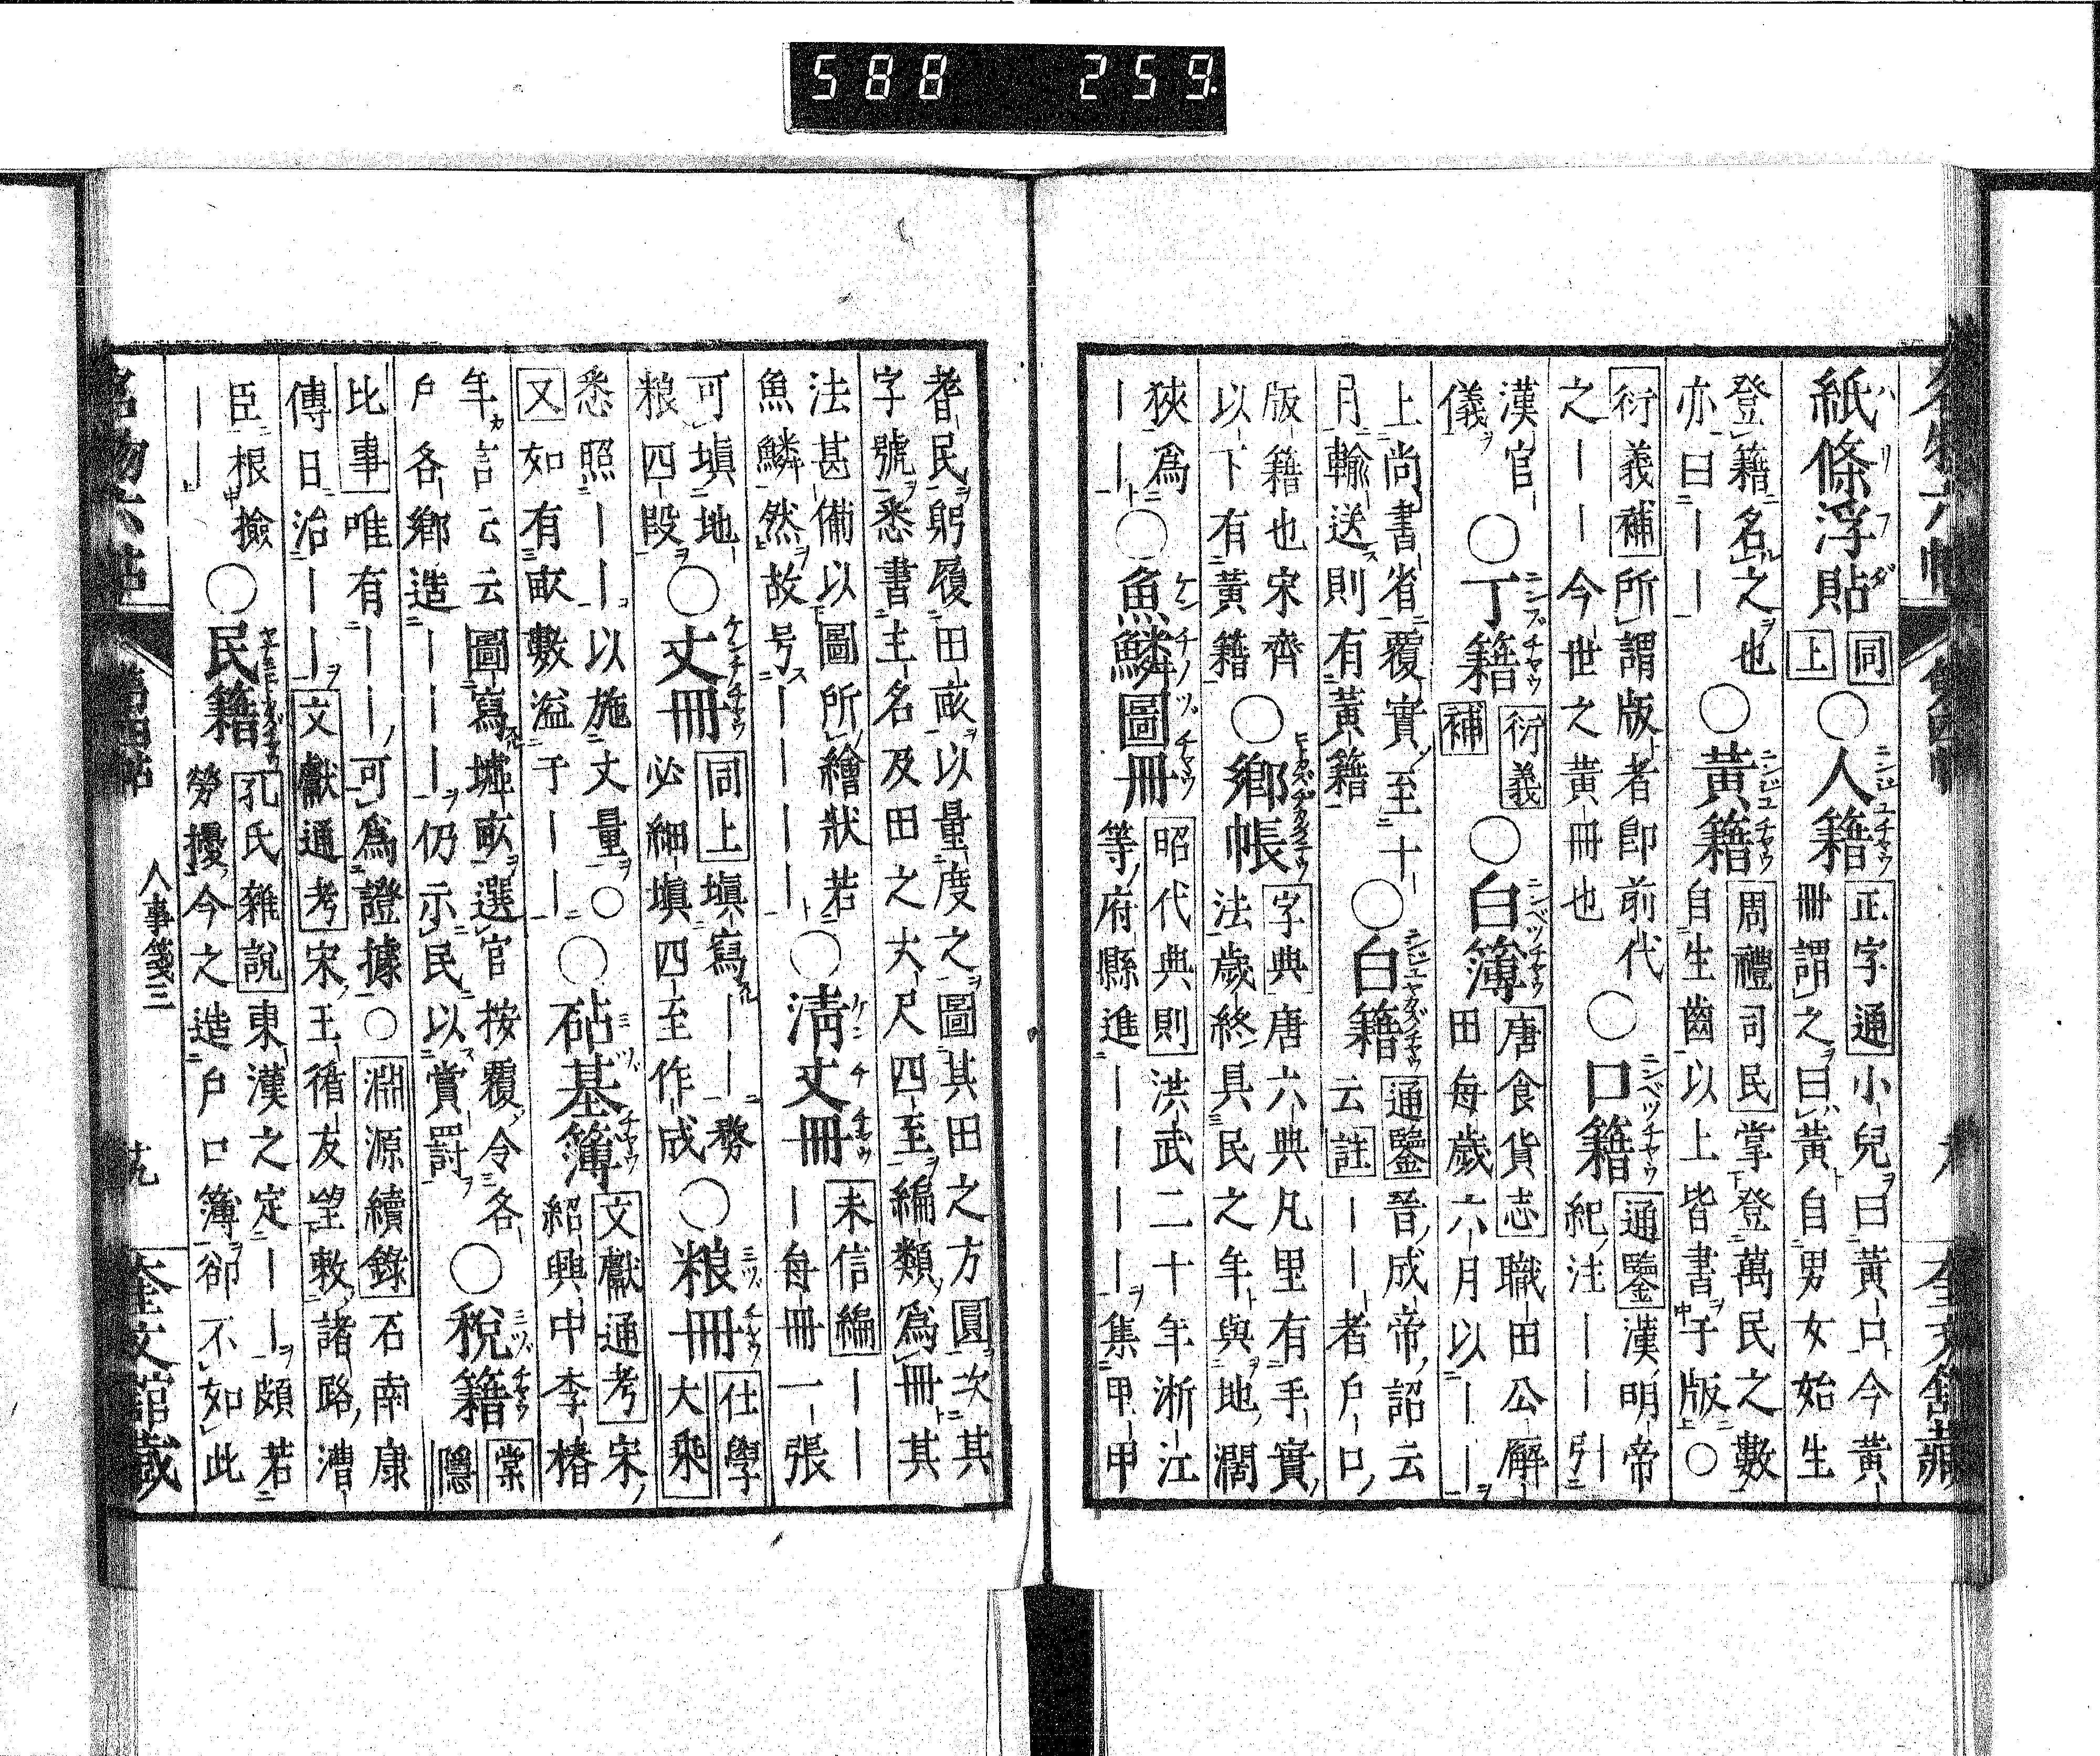 紙條浮貼
同
上
○人籍
正字通小兒曰黃口今黃
冊謂之曰黃自男女始生
登籍名之也
亦曰——
○黃籍
周禮司民掌登萬民之數
自生齒以上皆書于版○
衍義補所謂版者卽前代
之——今世之黃冊也
○口籍
通鑒漢明帝
紀注——引
漢官
儀
○丁籍
衍義
補
○白簿
唐食貨志職田公廨
田每歲六月以——
上尚書省覆實至十
月輸送則有黃籍
○白籍
通鑒晉成帝詔云
云註——者戶口
版籍也宋齊
以下有黃籍
○鄉帳
字典唐六典凡里有手實
法歲終具民之年與地濶
狹爲
——
○魚鱗圖冊
昭代典則洪武二十年浙江
等府縣進————集甲甲
耆民躬履田畝以量度之圖其田之方圓次其
字號悉書主名及田之丈尺四至編類爲冊其
法甚備以圖所繪狀若
魚鱗然故号————
○淸丈冊
未信編——
—每冊一張
可塡地
粮四段
○丈冊
同上塡寫——務
必細塡四至作成
○粮冊
仕學
大乘
悉照——以施丈量○
又如有畝數溢于——
○砧基簿
文獻通考宋
紹興中李椿
年言云云圖寫墟畝選官按覆令各
戶各鄉造———仍示民以賞罰
○稅籍
棠
隱
比事唯有——可爲證據○淵源續錄石南康
傳曰治——文獻通考宋王循友望敕諸路漕
臣根撿
——
○民籍
孔氏雜說東漢之定——頗若
勞擾今之造戶口簿卻不如此
名物六帖 第四帖 人事箋三 奎文館藏